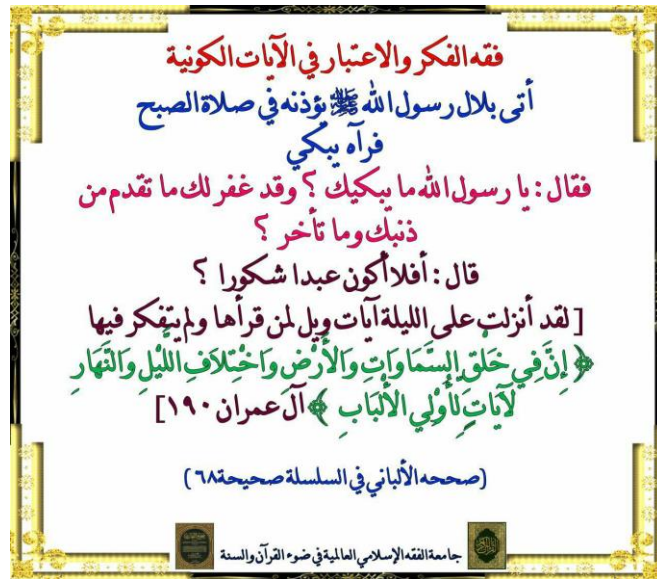 فقه الفكر والاعتبار في الآيات الكونية
أتى بلال رسول الله ﷺ يؤذنه في صلاة الصبح
فرآه يبكي
فقال : يا رسول الله ما يبكيك ؟ وقد غفر لك ما تقدم من
ذنبك وما تأخر ؟
قال : أفلا أكون عبدا شكورا ؟
[ لقد أنزلت على الليلة آيات ويل لمن قرأها ولم يتفكر فيها
﴿ إِنَّ فِي خَلْقِ السَّمَاوَاتِ وَالْأَرْضِ وَاخْتِلَافِ اللَّيْلِ وَالنَّهَارِ
لَآيَاتٍ لِّأُوْلِي الْأَلْبَابِ ﴾ آل عمران ١٩٠]
(صححه الألباني في السلسلة صحيحة ٦٨ )
جامعة الفقه الإسلامي العالمية في ضوء القرآن والسنة